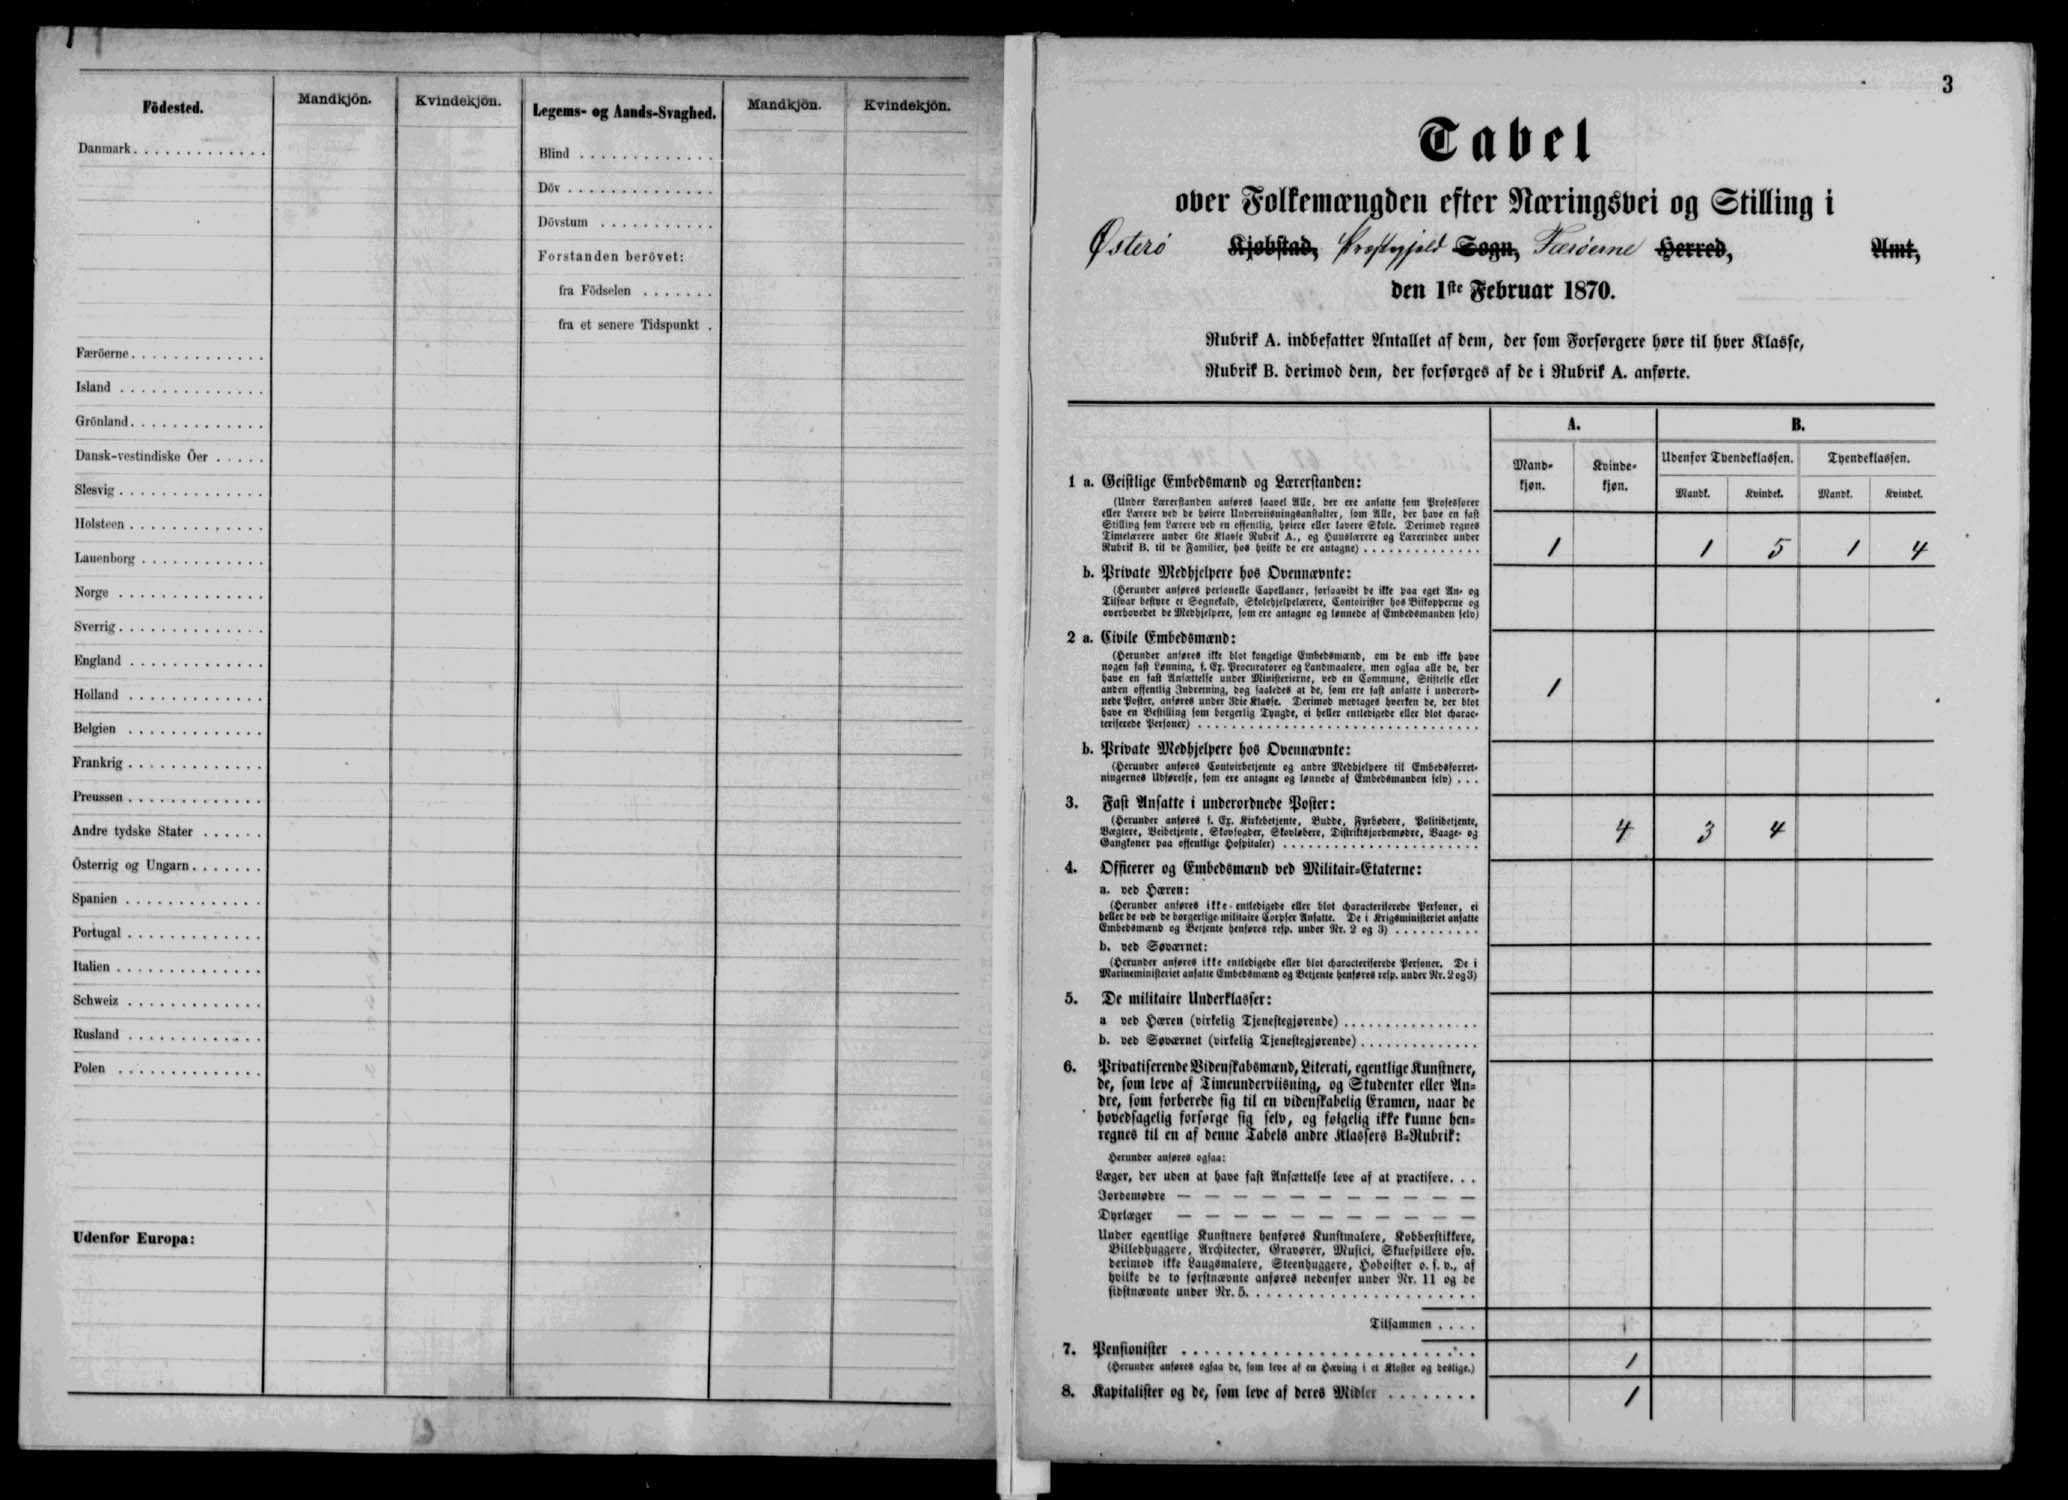 Födested.
Mandkjön.
Kvindekjön.
Legems- og Aands-Svaghed.
Mandkjön.
Kvindekjön.
Danmark
Færöerne
Island
Grönland
Dansk-vestindiske Öer
Slesvig
Holsteen
Lauenborg
Norge
Sverrig
England
Holland
Belgien
Frankrig
Preussen
Andre tydske Stater
Österrig og Ungarn
Spanien
Portugal
Italien
Schweiz
Rusland
Polen
Udenfor Europa:
Blind
Döv
Dövstum
Forstanden berövet:
fra Födselen
fra et senere Tidspunkt
3
Tabel
over Folkemængden efter Næringsvei og Stilling i
Østerø Kjøbstad, Præstegjeld Sogn, Færöerne Herred, Amt,
den 1ste Februar 1870.
Rubrik A. indbefatter Antallet af dem, der som Forsørgere høre til hver Klasse,
Rubrik B. derimod dem, der forsørges af de i Rubrik A. anførte.
A.
B.
Mand-
kjøn.
Kvinde-
kjøn.
Udenfor Tyendeklassen.
Tyendeklassen.
Mandk.
Kvindek.
Mandk.
Kvindek.
1 a. Geistlige Embedsmænd og Lærerstanden:
(Under Lærerstanden anføres saavel Alle, der ere ansatte som Professorer
eller Lærere ved de høiere Underviisningsanstalter, som Alle, der have en fast
Stilling som Lærere ved en offentlig, høiere eller lavere Skole. Derimod regnes
Timelærere under 6te Klasse Rubrik A., og Huuslærere og Lærerinder under
Rubrik B. til de Familier, hos hvilke de ere antagne) 1 1 5 1 4
b. Private Medhjelpere hos Ovennævnte:
(Herunder anføres personelle Capellaner, forsaavidt de ikke paa eget An- og
Tilsvar bestyre et Sognekald, Skolehjelpelærere, Contoirister hos Biskopperne og
overhovedet de Medhjelpere, som ere antagne og lønnede af Embedsmanden selv)
2 a. Civile Embedsmænd:
(Herunder anføres ikke blot kongelige Embedsmænd, om de end ikke have
nogen fast Lønning, f. Ex. Procuratorer og Landmaalere, men ogsaa alle de, der
have en fast Ansættelse under Ministerierne, ved en Commune, Stiftelse eller
anden offentlig Indretning, dog saaledes at de, som ere fast ansatte i underord-
nede Poster, anføres under 3die Klasse. Derimod medtages hverken de, der blot
have en Bestilling som borgerlig Tyngde, ei heller entledigede eller blot charac-
teriserede Personer) 1
b. Private Medhjelpere hos Ovennævnte:
(Herunder anføres Contoirbetjente og andre Medhjelpere til Embedsforret-
ningernes Udførelse, som ere antagne og lønnede af Embedsmanden selv)
3. Fast Ansatte i underordnede Poster:
(Herunder anføres f. Ex. Kirkebetjente, Budde, Fyrbødere, Politibetjente,
Vægtere, Veibetjente, Skovfogder, Skovløbere, Distriktsjordemødre, Vaage- og
Gangkoner paa offentlige Hospitaler) 4 3 4
4. Officerer og Embedsmænd ved Militair-Etaterne:
a. ved Hæren:
(Herunder anføres ikke entledigede eller blot characteriserede Personer, ei
heller de ved de borgerlige militaire Corpser Ansatte. De i Krigsministeriet ansatte
Embedsmænd og Betjente henføres resp. under Nr. 2 og 3)
b. ved Søværnet:
(Herunder anføres ikke entledigede eller blot characteriserede Personer. De i
Marineministeriet ansatte Embedsmænd og Betjente henføres resp. under Nr. 2 og 3)
5. De militaire Underklasser:
a ved Hæren (virkelig Tjenestegjørende)
b. ved Søværnet (virkelig Tjenestegjørende)
6. Privatiserende Videnskabsmænd, Literati, egentlige Kunstnere,
de, som leve af Timeunderviisning, og Studenter eller An-
dre, som forberede sig til en videnskabelig Examen, naar de
hovedsagelig forsørge sig selv, og følgelig ikke kunne hen-
regnes til en af denne Tabels andre Klassers B-Rubrik:
Herunder anføres ogsaa:
Læger, der uden at have fast Ansættelse leve af at practisere
Jordemødre — — — — — — — — — — —
Dyrlæger — — — — — — — — — — —
Under egentlige Kunstnere henføres Kunstmalere, Kobberstikkere,
Billedhuggere, Architecter, Gravører, Musici, Skuespillere osv.
derimod ikke Laugsmalere, Steenhuggere, Hoboister o. s. v., af
hvilke de to førstnævnte anføres nedenfor under Nr. 11 og de
sidstnævnte under Nr. 5.
Tilsammen
7. Pensionister
(Herunder anføres ogsaa de, som leve af en Hæving i et Kloster og deslige.) 1
8. Kapitalister og de, som leve af deres Midler 1